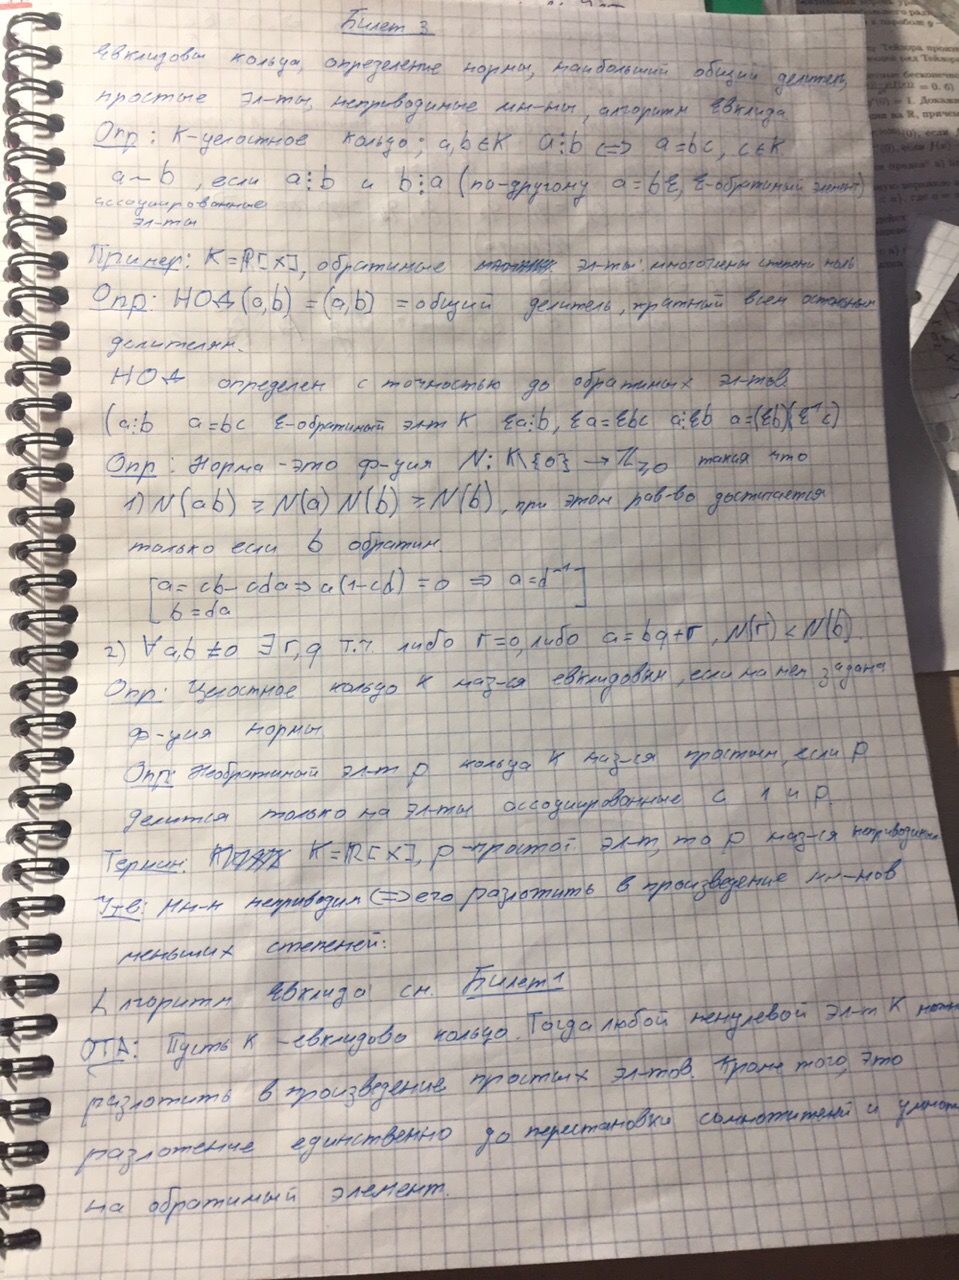 Билет 3
Евклидовы кольца, определение нормы, наибольший общий делитель,
простые эл-ты, неприводимые мн-ны, алгоритм Евклида
Опр: K-целостное кольцо; a,b∈K a⋮b ⇔ a=bc, c∈K
a~b, если a⋮b и b⋮a (по-другому a=bε, ε-обратимый элемент)
ассоциированные
эл-ты
Пример: K=ℝ[x], обратимые эл-ты: многочлены степени ноль
Опр: НОД(a,b)=(a,b) = общий делитель, кратный всем остальным
делителям.
НОД определен с точностью до обратимых эл-тов.
(a⋮b a=bc ε-обратимый эл-т K εa⋮b, εa=εbc a⋮εb a=(εb)(ε⁻¹c)
Опр: Норма -это ф-ция N: K\{0} → ℤ≥0 такая что
1) N(ab) ≥ N(a) N(b) ≥ N(b), при этом рав-во достигается
только если b обратим.
[a=cb=cda⇒a(1-cd)=0 ⇒ a=d⁻¹]
b=da
2) ∀a,b≠0 ∃ r,q т.ч. либо r=0, либо a=bq+r, N(r)<N(b).
Опр: Целостное кольцо K наз-ся евклидовым, если на нем задана
ф-ция нормы.
Опр: Необратимый эл-т p кольца K наз-ся простым, если p
делится только на эл-ты ассоциированные с 1 и p.
Термин: K=ℝ[x], p-простой эл-т, то p наз-ся неприводимым
Утв: Мн-н неприводим ⇔ его разложить в произведение мн-нов
меньших степеней.
Алгоритм Евклида см. Билет 1
ОТА: Пусть K -евклидово кольцо. Тогда любой ненулевой эл-т K
разложить в произведение простых эл-тов. Кроме того, это
разложение единственно до перестановки сомножителей и
на обратимый элемент.